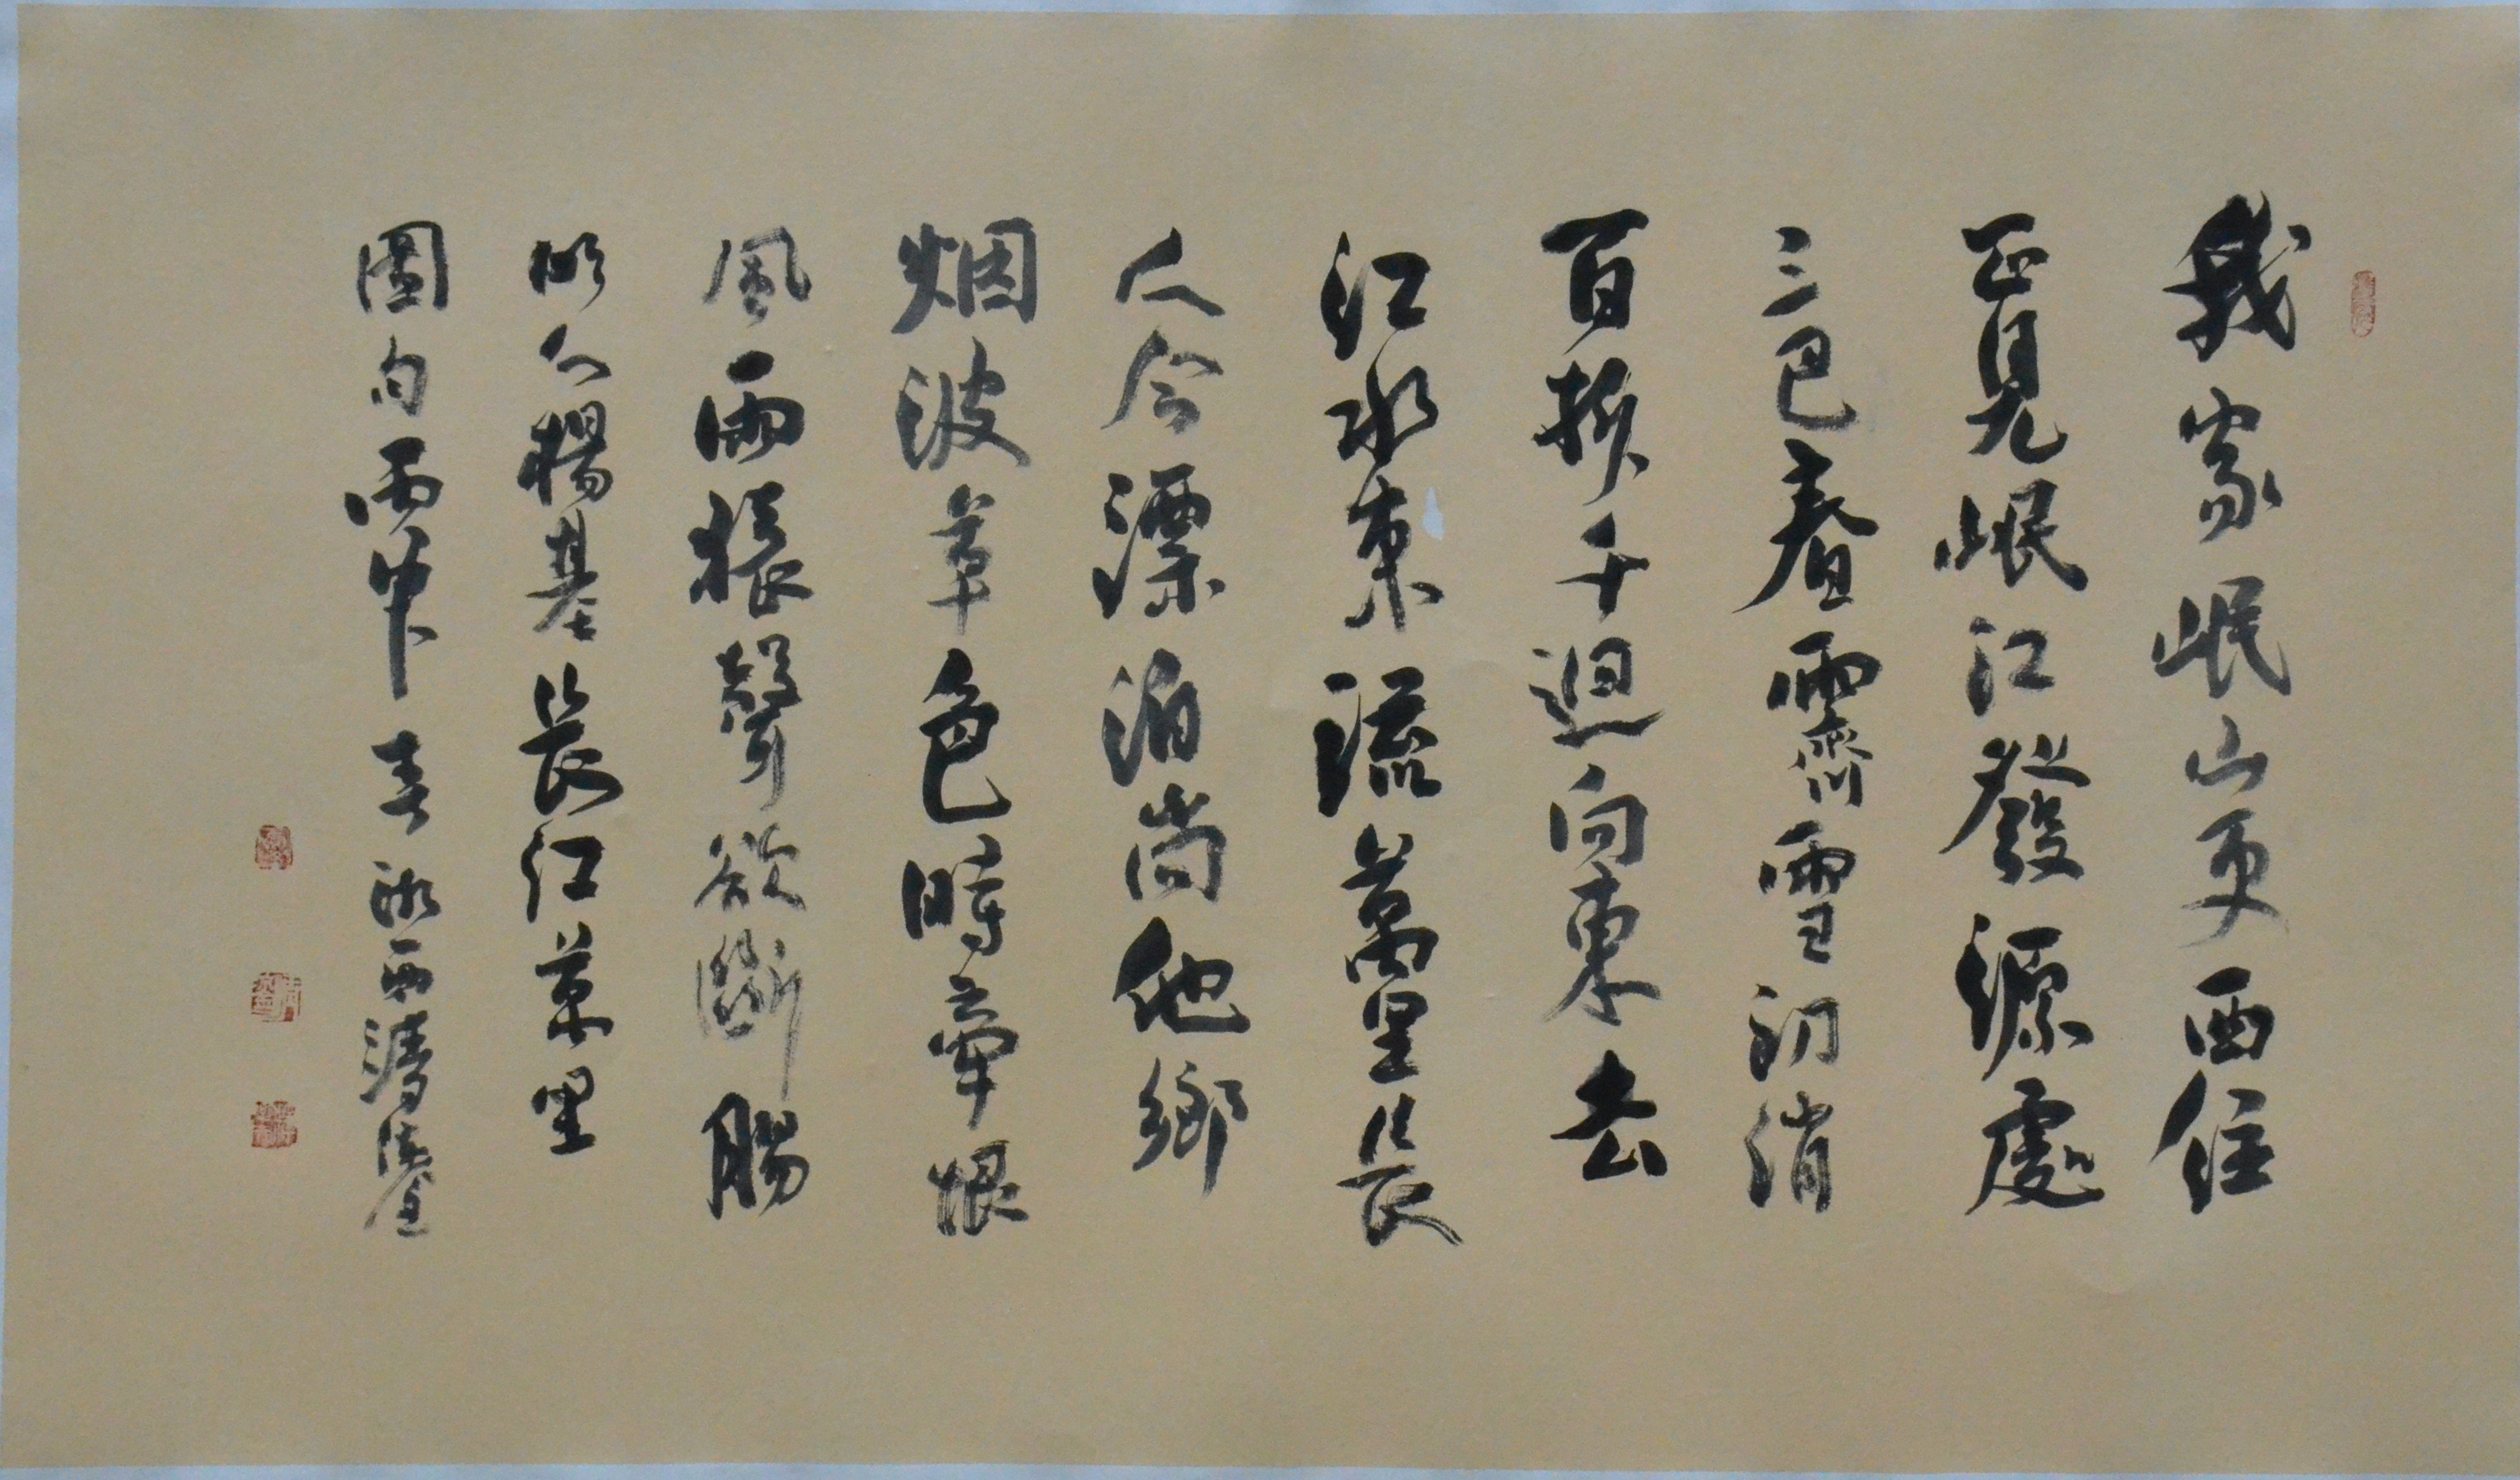 我家岷山更西住
正見岷江發源處
三巴春霽雪初消
百折千迴向東去
江水東流萬里長
人今漂泊尚他鄉
烟波草色時牽恨
風雨猿聲欲斷腸
明人楊基長江萬里
圖句丙申春浙西